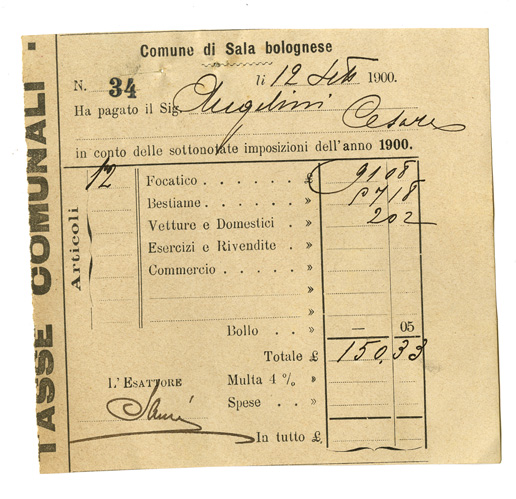 TASSE COMUNALI
Comune di Sala bolognese
N. 34 li 12 1900.
Ha pagato il Sig. Angelini
Cesare
in conto delle sottonotate imposizioni dell'anno 1900.
Articoli
12 Focatico . . . . . . £ 91 08
Bestiame . . . . . . » 57 18
Vetture e Domestici . » 2 02
Esercizi e Rivendite . »
Commercio . . . . . »
»
»
Bollo . . » — 05
Totale £ 150,33
L'ESATTORE Multa 4 % . »
Spese . . »
In tutto £.